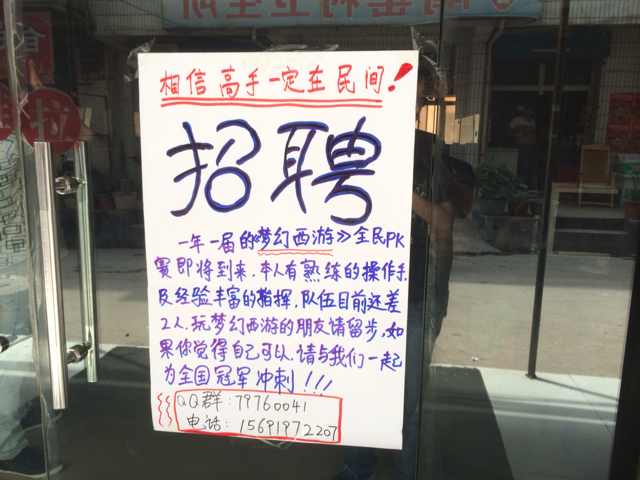 相信高手一定在民间!
招聘
一年一届的《梦幻西游》全民PK
赛即将到来,本人有熟练的操作手
及经验丰富的指挥,队伍目前还差
2人,玩梦幻西游的朋友请留步,如
果你觉得自己可以,请与我们一起
为全国冠军冲刺!!!
QQ群:79760041
电话:15691972207